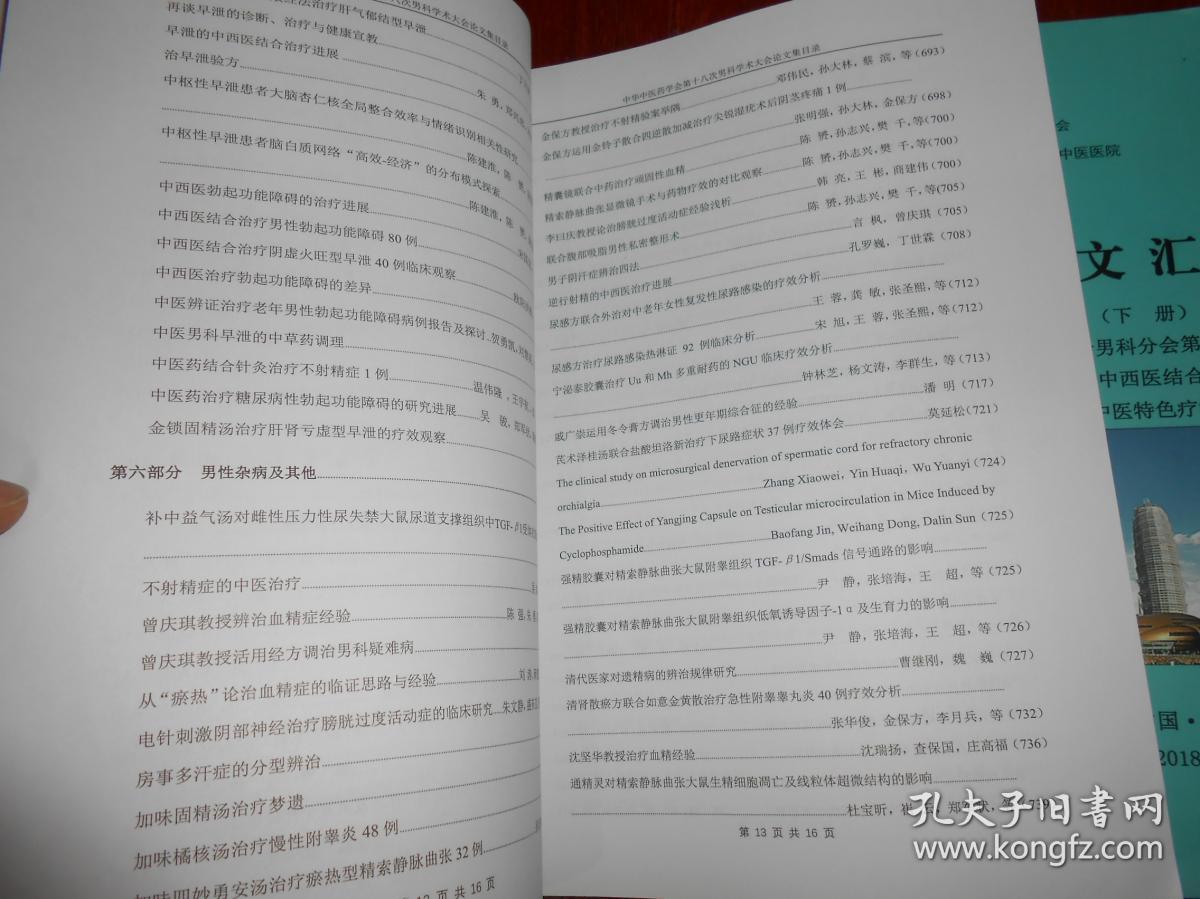 治疗肝气郁结型早泄
次男科学术大会论文集目录
再谈早泄的诊断、治疗与健康宣教
早泄的中西医结合治疗进展
治早泄验方
朱 勇,
中枢性早泄患者大脑杏仁核全局整合效率与情绪识别相关性研究
陈建淮,陈
中枢性早泄患者脑白质网络“高效-经济”的分布模式探索
陈建淮,陈
中西医勃起功能障碍的治疗进展
中西医结合治疗男性勃起功能障碍80例
中西医结合治疗阴虚火旺型早泄40例临床观察
中西医治疗勃起功能障碍的差异
中医辨证治疗老年男性勃起功能障碍病例报告及探讨 贺勇凯,
中医男科早泄的中草药调理
中医药结合针灸治疗不射精症1例 温伟隆,
中医药治疗糖尿病性勃起功能障碍的研究进展 吴 敏,
金锁固精汤治疗肝肾亏虚型早泄的疗效观察
第六部分 男性杂病及其他
补中益气汤对雌性压力性尿失禁大鼠尿道支撑组织中TGF-β1
不射精症的中医治疗
曾庆琪教授辨治血精症经验 陈 强,
曾庆琪教授活用经方调治男科疑难病
从“瘀热”论治血精症的临证思路与经验 刘
电针刺激阴部神经治疗膀胱过度活动症的临床研究 朱文静,
房事多汗症的分型辨治
加味固精汤治疗梦遗
加味橘核汤治疗慢性附睾炎48例
加味四妙勇安汤治疗瘀热型精索静脉曲张32例
页 共 16 页
中华中医药学会第十八次男科学术大会论文集目录
金保方教授治疗不射精验案举隅 邓伟民,孙大林,蔡 滨,等(693)
金保方运用金铃子散合四逆散加减治疗尖锐湿疣术后阴茎疼痛1例
张明强,孙大林,金保方(698)
精囊镜联合中药治疗顽固性血精 陈 赟,孙志兴,樊 千,等(700)
精索静脉曲张显微镜手术与药物疗效的对比观察 陈 赟,孙志兴,樊 千,等(700)
李曰庆教授论治膀胱过度活动症经验浅析 韩 亮,王 彬,商建伟(700)
联合腹部吸脂男性私密整形术 陈 赟,孙志兴,樊 千,等(705)
男子阴汗症辨治四法 言 枫,曾庆琪(705)
逆行射精的中西医治疗进展 孔罗巍,丁世霖(708)
尿感方联合外治对中老年女性复发性尿路感染的疗效分析
王 蓉,龚 敏,张圣熙,等(712)
尿感方治疗尿路感染热淋证 92 例临床分析 宋 旭,王 蓉,张圣熙,等(712)
宁泌泰胶囊治疗Uu和Mh多重耐药的NGU临床疗效分析
钟林芝,杨文涛,李群生,等(713)
戚广崇运用冬令膏方调治男性更年期综合征的经验 潘 明(717)
芪术泽桂汤联合盐酸坦洛新治疗下尿路症状37例疗效体会 莫延松(721)
The clinical study on microsurgical denervation of spermatic cord for refractory chronic
orchialgia Zhang Xiaowei, Yin Huaqi, Wu Yuanyi(724)
The Positive Effect of Yangjing Capsule on Testicular microcirculation in Mice Induced by
Cyclophosphamide Baofang Jin, Weihang Dong, Dalin Sun(725)
强精胶囊对精索静脉曲张大鼠附睾组织TGF-β1/Smads信号通路的影响
尹 静,张培海,王 超,等(725)
强精胶囊对精索静脉曲张大鼠附睾组织低氧诱导因子-1α及生育力的影响
尹 静,张培海,王 超,等(726)
清代医家对遗精病的辨治规律研究 曹继刚,魏 巍(727)
清肾散瘀方联合如意金黄散治疗急性附睾睾丸炎40例疗效分析
张华俊,金保方,李月兵,等(732)
沈坚华教授治疗血精经验 沈瑞扬,查保国,庄高福(736)
通精灵对精索静脉曲张大鼠生精细胞凋亡及线粒体超微结构的影响
杜宝昕,
第 13 页 共 16 页
会
中医医院
文 汇
(下 册)
男科分会第
中西医结合
中医特色疗
国·
2018
孔夫子旧书网
www.kongfz.com